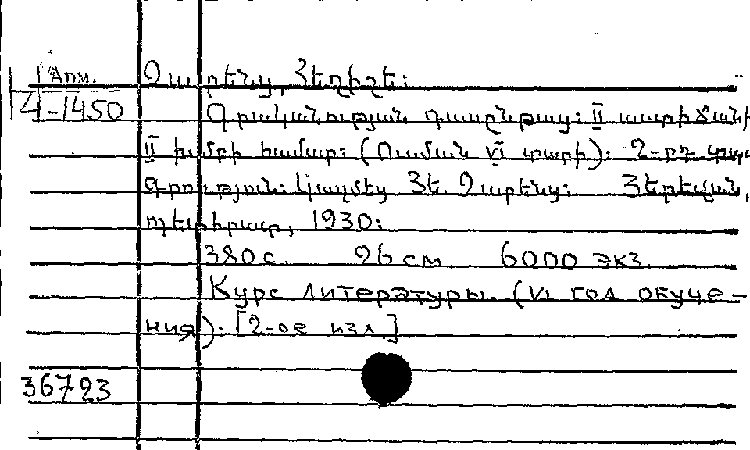 Арм.
4-1450
Չարենց, Եղիշե:
Գրականության դասընթաց: II աստիճանի
II խմբի համար: (Ուսման VI տարի): 2-րդ
գրություն: Կազմեց Եղ. Չարենց: Յերևան,
պետհրատ, 1930:
380 с. 26 см 6000 экз.
Курс литературы. (VI год обуче-
ния). [2-ое изд.]
36723